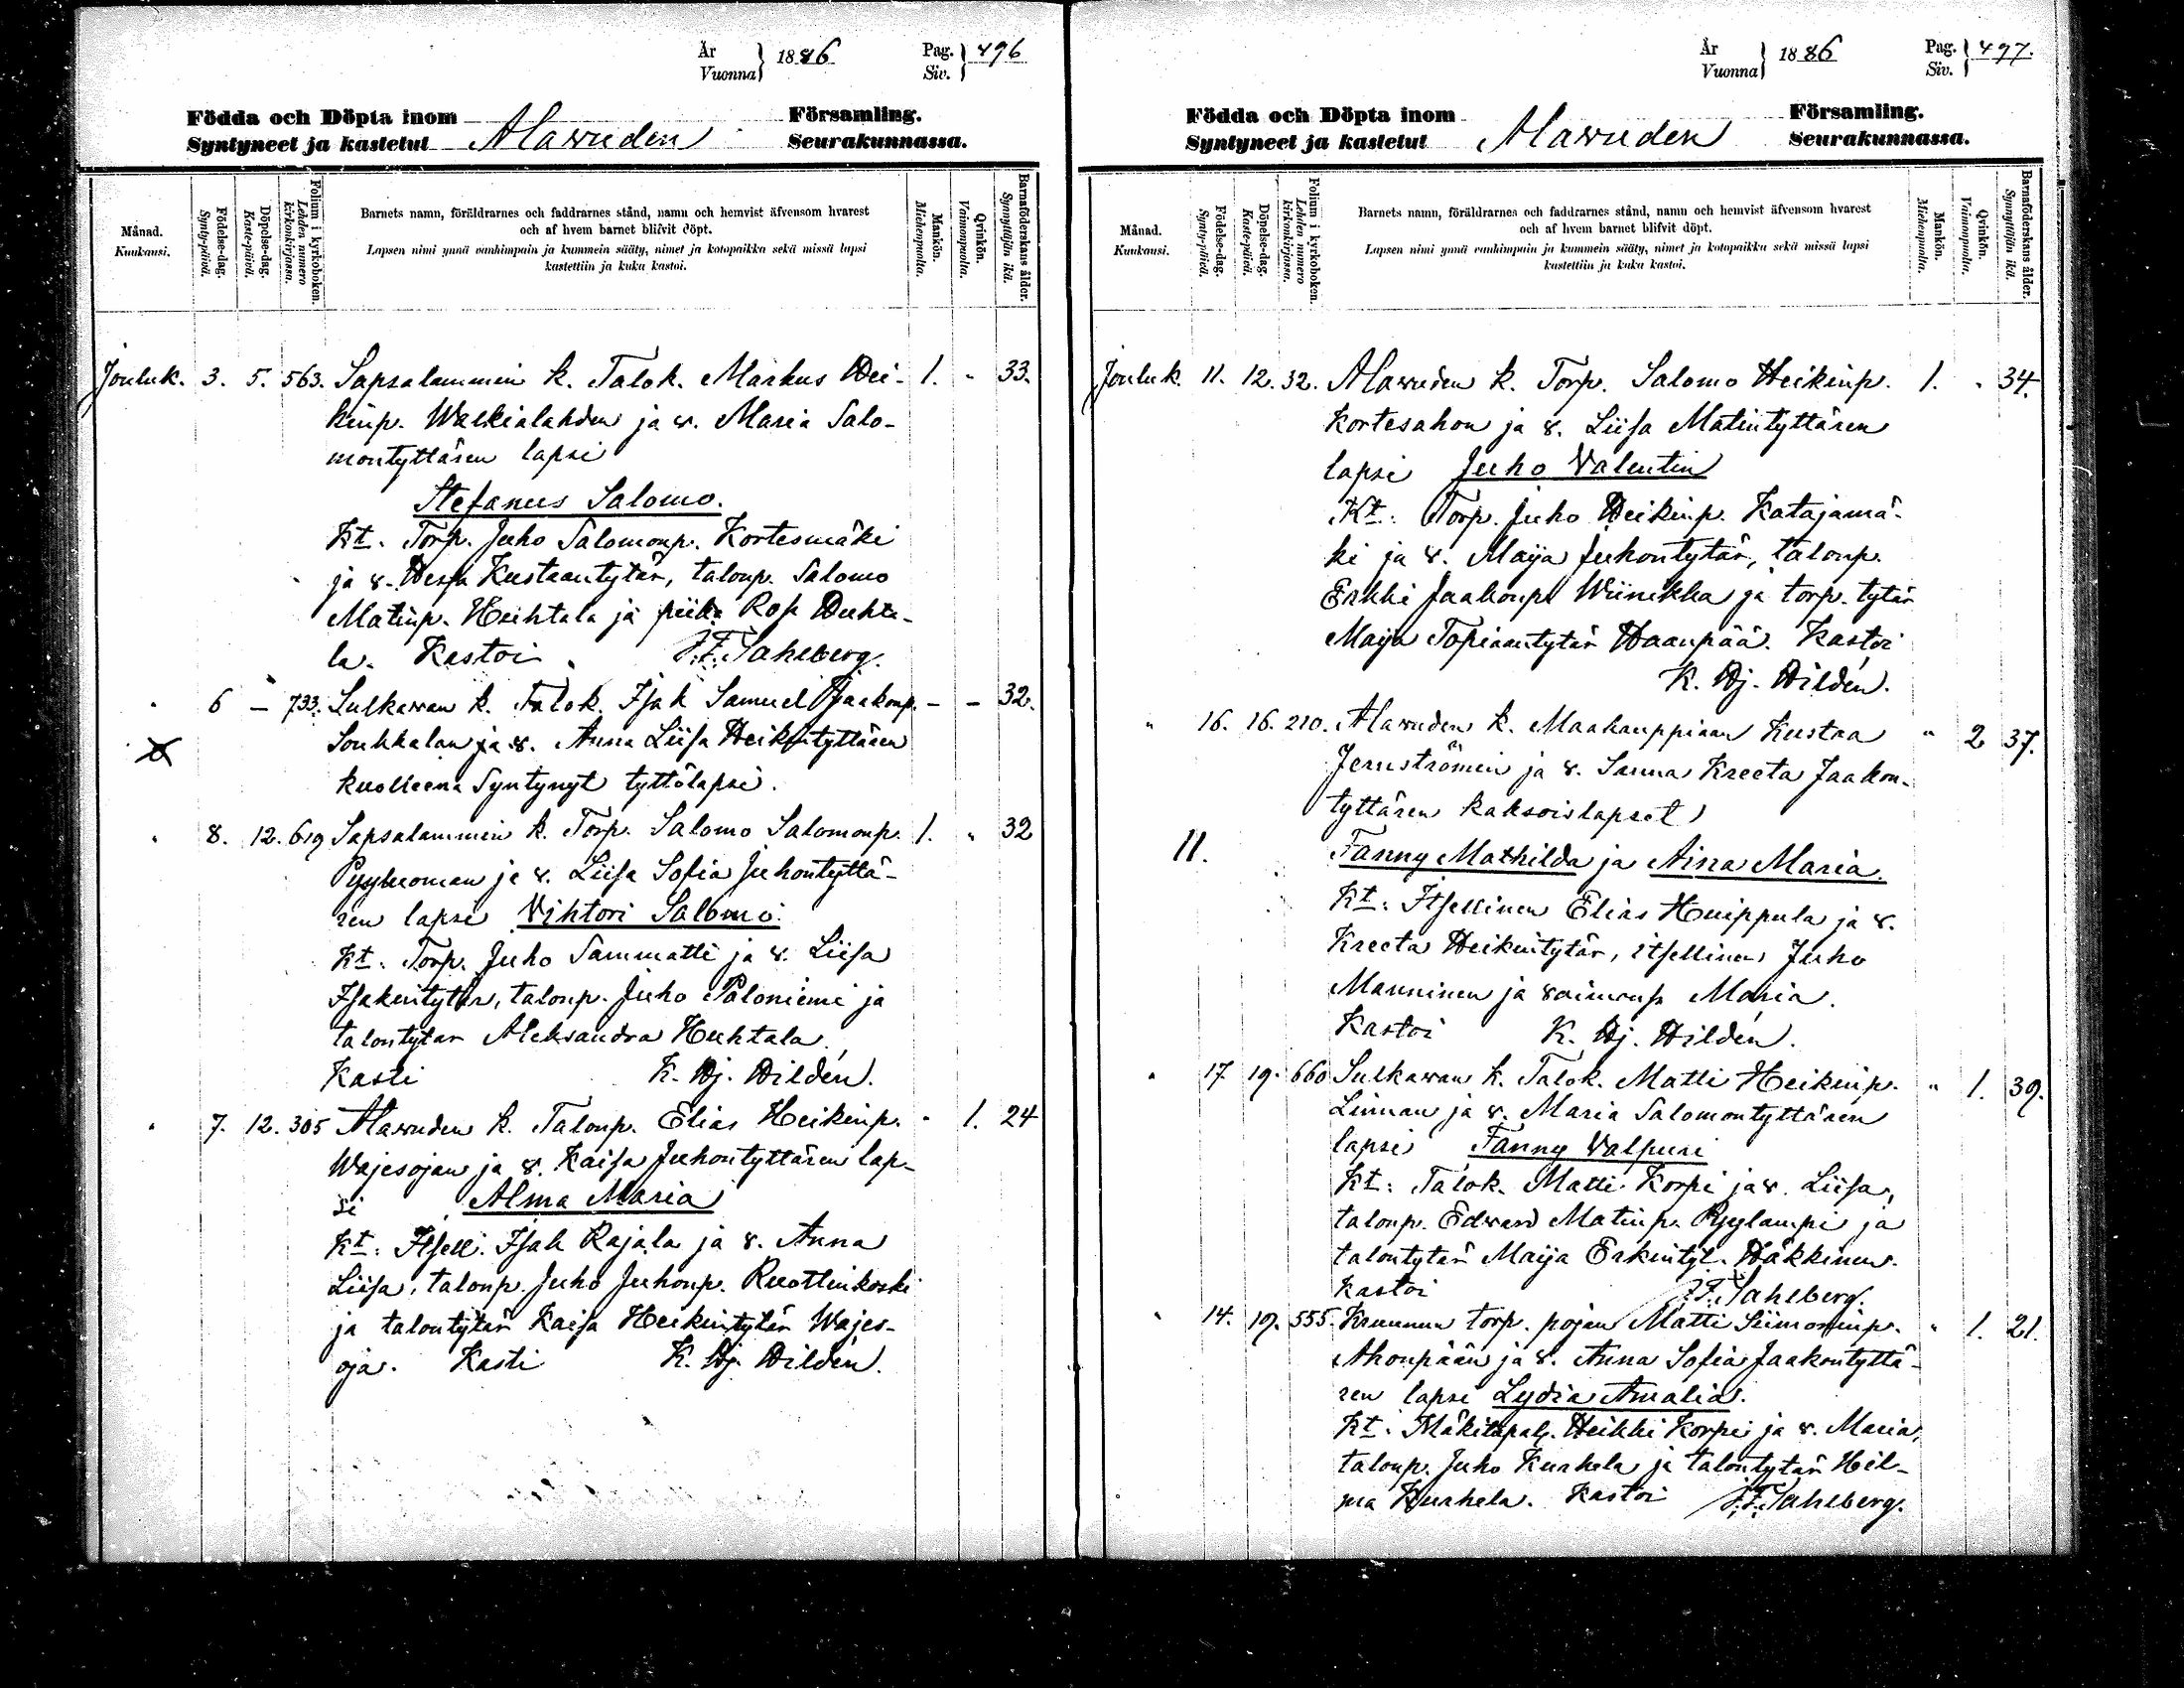 År
Vuonna } 1886
Pag.
Siv. } 496
Födda och Döpta inom Församling.
Syntyneet ja kastetut Alavuden Seurakunnassa.
Månad.
Kuukausi.
Födelse-dag.
Synty-päivä.
Döpelse-dag.
Kaste-päivä.
Folium i kyrkoboken.
Lehden numero
kirkonkirjassa.
Barnets namn, föräldrarnes och faddrarnes stånd, namn och hemvist äfvensom hvarest
och af hvem barnet blifvit döpt.
Lapsen nimi ynnä vanhimpain ja kummein sääty, nimet ja kotopaikka sekä missä lapsi
kastettiin ja kuka kastoi.
Mankön.
Miehenpuolta.
Qvinkön.
Vaimonpuolta.
Barnaföderskans ålder.
Synnyttäjän ikä.
Jouluk. 3. 5. 563. Sapsalammin k. Talok. Markus Hei- 1. " 33.
kinp. Walkialahden ja v. Maria Salo-
montyttären lapsi
Stefanus Salomo.
Kt. Torp. Juho Salomonp. Kortesmäki
ja v. Hessa Kustaantytär, talonp. Salomo
Matinp. Huhtala ja piika Rosa Huhta-
la. Kastoi J.F. Sahlberg.
" 6 – 733. Sulkavan k. Talok. Isak Samuel Jaakonp. – – 32.
Soukkalan ja v. Anna Liisa Heikintyttären
kuolleena Syntynyt tyttölapsi.
" 8. 12. 619 Sapsalammin k. Torp. Salomo Salomonp. 1. " 32
Pyyluoman ja v. Liisa Sofia Juhontyttä-
ren lapsi Vihtori Salomo.
Kt. Torp. Juho Sammatti ja v. Liisa
Isakintytär, talonp. Juho Paloniemi ja
talontytär Aleksandra Huhtala.
Kasti K. Hj. Hildén.
" 7. 12. 305 Alavuden k. Talonp. Elias Heikinp. " 1. 24
Wajesojan ja v. Kaisa Juhontyttären lap-
si Alma Maria
Kt: Itsell. Isak Rajala ja v. Anna
Liisa, talonp. Juho Juhonp. Ruottinkoski
ja talontytär Kaisa Heikintytär Wajes-
oja. Kasti K. Hj. Hildén.
År
Vuonna } 1886
Pag.
Siv. } 497.
Födda och Döpta inom Församling.
Syntyneet ja kastetut Alavuden Seurakunnassa.
Månad.
Kuukausi.
Födelse-dag.
Synty-päivä.
Döpelse-dag.
Kaste-päivä.
Folium i kyrkoboken.
Lehden numero
kirkonkirjassa.
Barnets namn, föräldrarnes och faddrarnes stånd, namn och hemvist äfvensom hvarest
och af hvem barnet blifvit döpt.
Lapsen nimi ynnä vanhimpain ja kummein sääty, nimet ja kotopaikka sekä missä lapsi
kastettiin ja kuka kastoi.
Mankön.
Miehenpuolta.
Qvinkön.
Vaimonpuolta.
Barnaföderskans ålder.
Synnyttäjän ikä.
Jouluk. 11. 12. 32. Alavuden k. Torp. Salomo Heikinp. 1. " 34.
Kortesahon ja v. Liisa Matintyttären
lapsi Juho Valentin
Kt: Torp. Juho Heikinp. Katajamä-
ki ja v. Maija Juhontytär, talonp.
Erkki Jaakonp. Wiinikka ja torp. tytär
Maija Topiaantytär Haanpää. Kastoi
K. Hj. Hildén.
" 16. 16. 210. Alavuden k. Maakauppiaan Kustaa " 2 37.
Jernströmin ja v. Sanna Kreeta Jaakon-
tyttären kaksoislapset
11. Fanny Mathilda ja Aina Maria.
Kt: Itsellinen Elias Huippula ja v.
Kreeta Heikintytär, itsellinen Juho
Manninen ja vaimonsa Maria.
Kastoi K. Hj. Hildén.
" 17 19. 660 Sulkavan k. Talok. Matti Heikinp. " 1. 39.
Linnan ja v. Maria Salomontyttären
lapsi Fanny Valpuri
Kt: Talok. Matti Korpi ja v. Liisa,
talonp. Edvard Matinp. Pyylampi ja
talontytär Maija Erkintyt. Häkkinen.
Kastoi J.F. Sahlberg.
" 14. 19. 555. Kruunun torp. pojan Matti Siimoninp. " 1. 21.
Ahonpään ja v. Anna Sofia Jaakontyttä-
ren lapsi Lydia Amalia.
Kt: Mäkitupal. Heikki Korpi ja v. Maria,
talonp. Juho Kurhela ja talontytär Hil-
ma Kurhela. Kastoi J.F. Sahlberg.